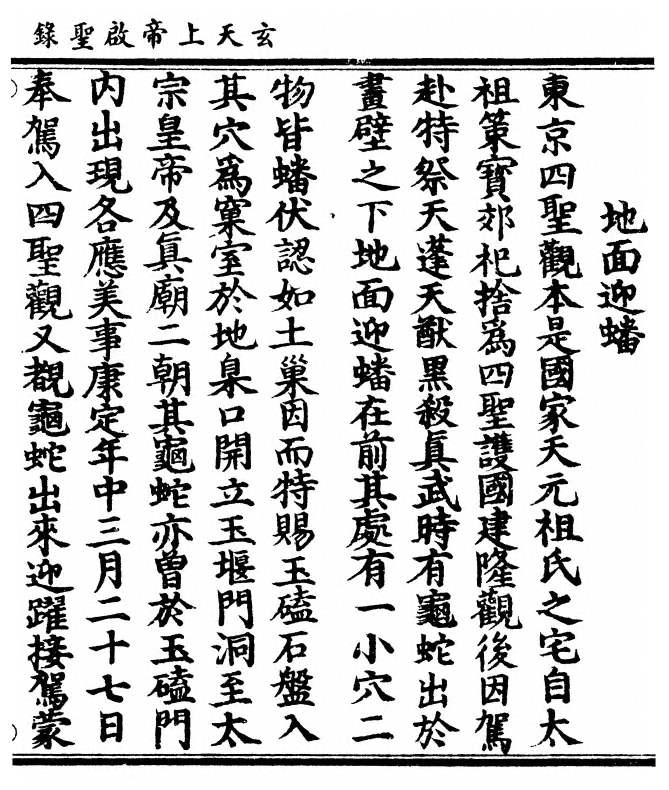 玄天上帝啟聖錄
地面迎蟠
東京四聖觀本是國家天元祖氏之宅自太
祖策寶郊祀捨為四聖護國建隆觀後因駕
赴特祭天蓬天猷黑殺真武時有龜蛇出於
畫壁之下地面迎蟠在前其處有一小穴二
物皆蟠伏認如土巢因而特賜玉磕石盤入
其穴為窠室於地臬口開立玉堰門洞至太
宗皇帝及真廟二朝其龜蛇亦曾於玉磕門
內出現各應美事康定年中三月二十七日
奉駕入四聖觀又覩龜蛇出來迎躍接駕蒙